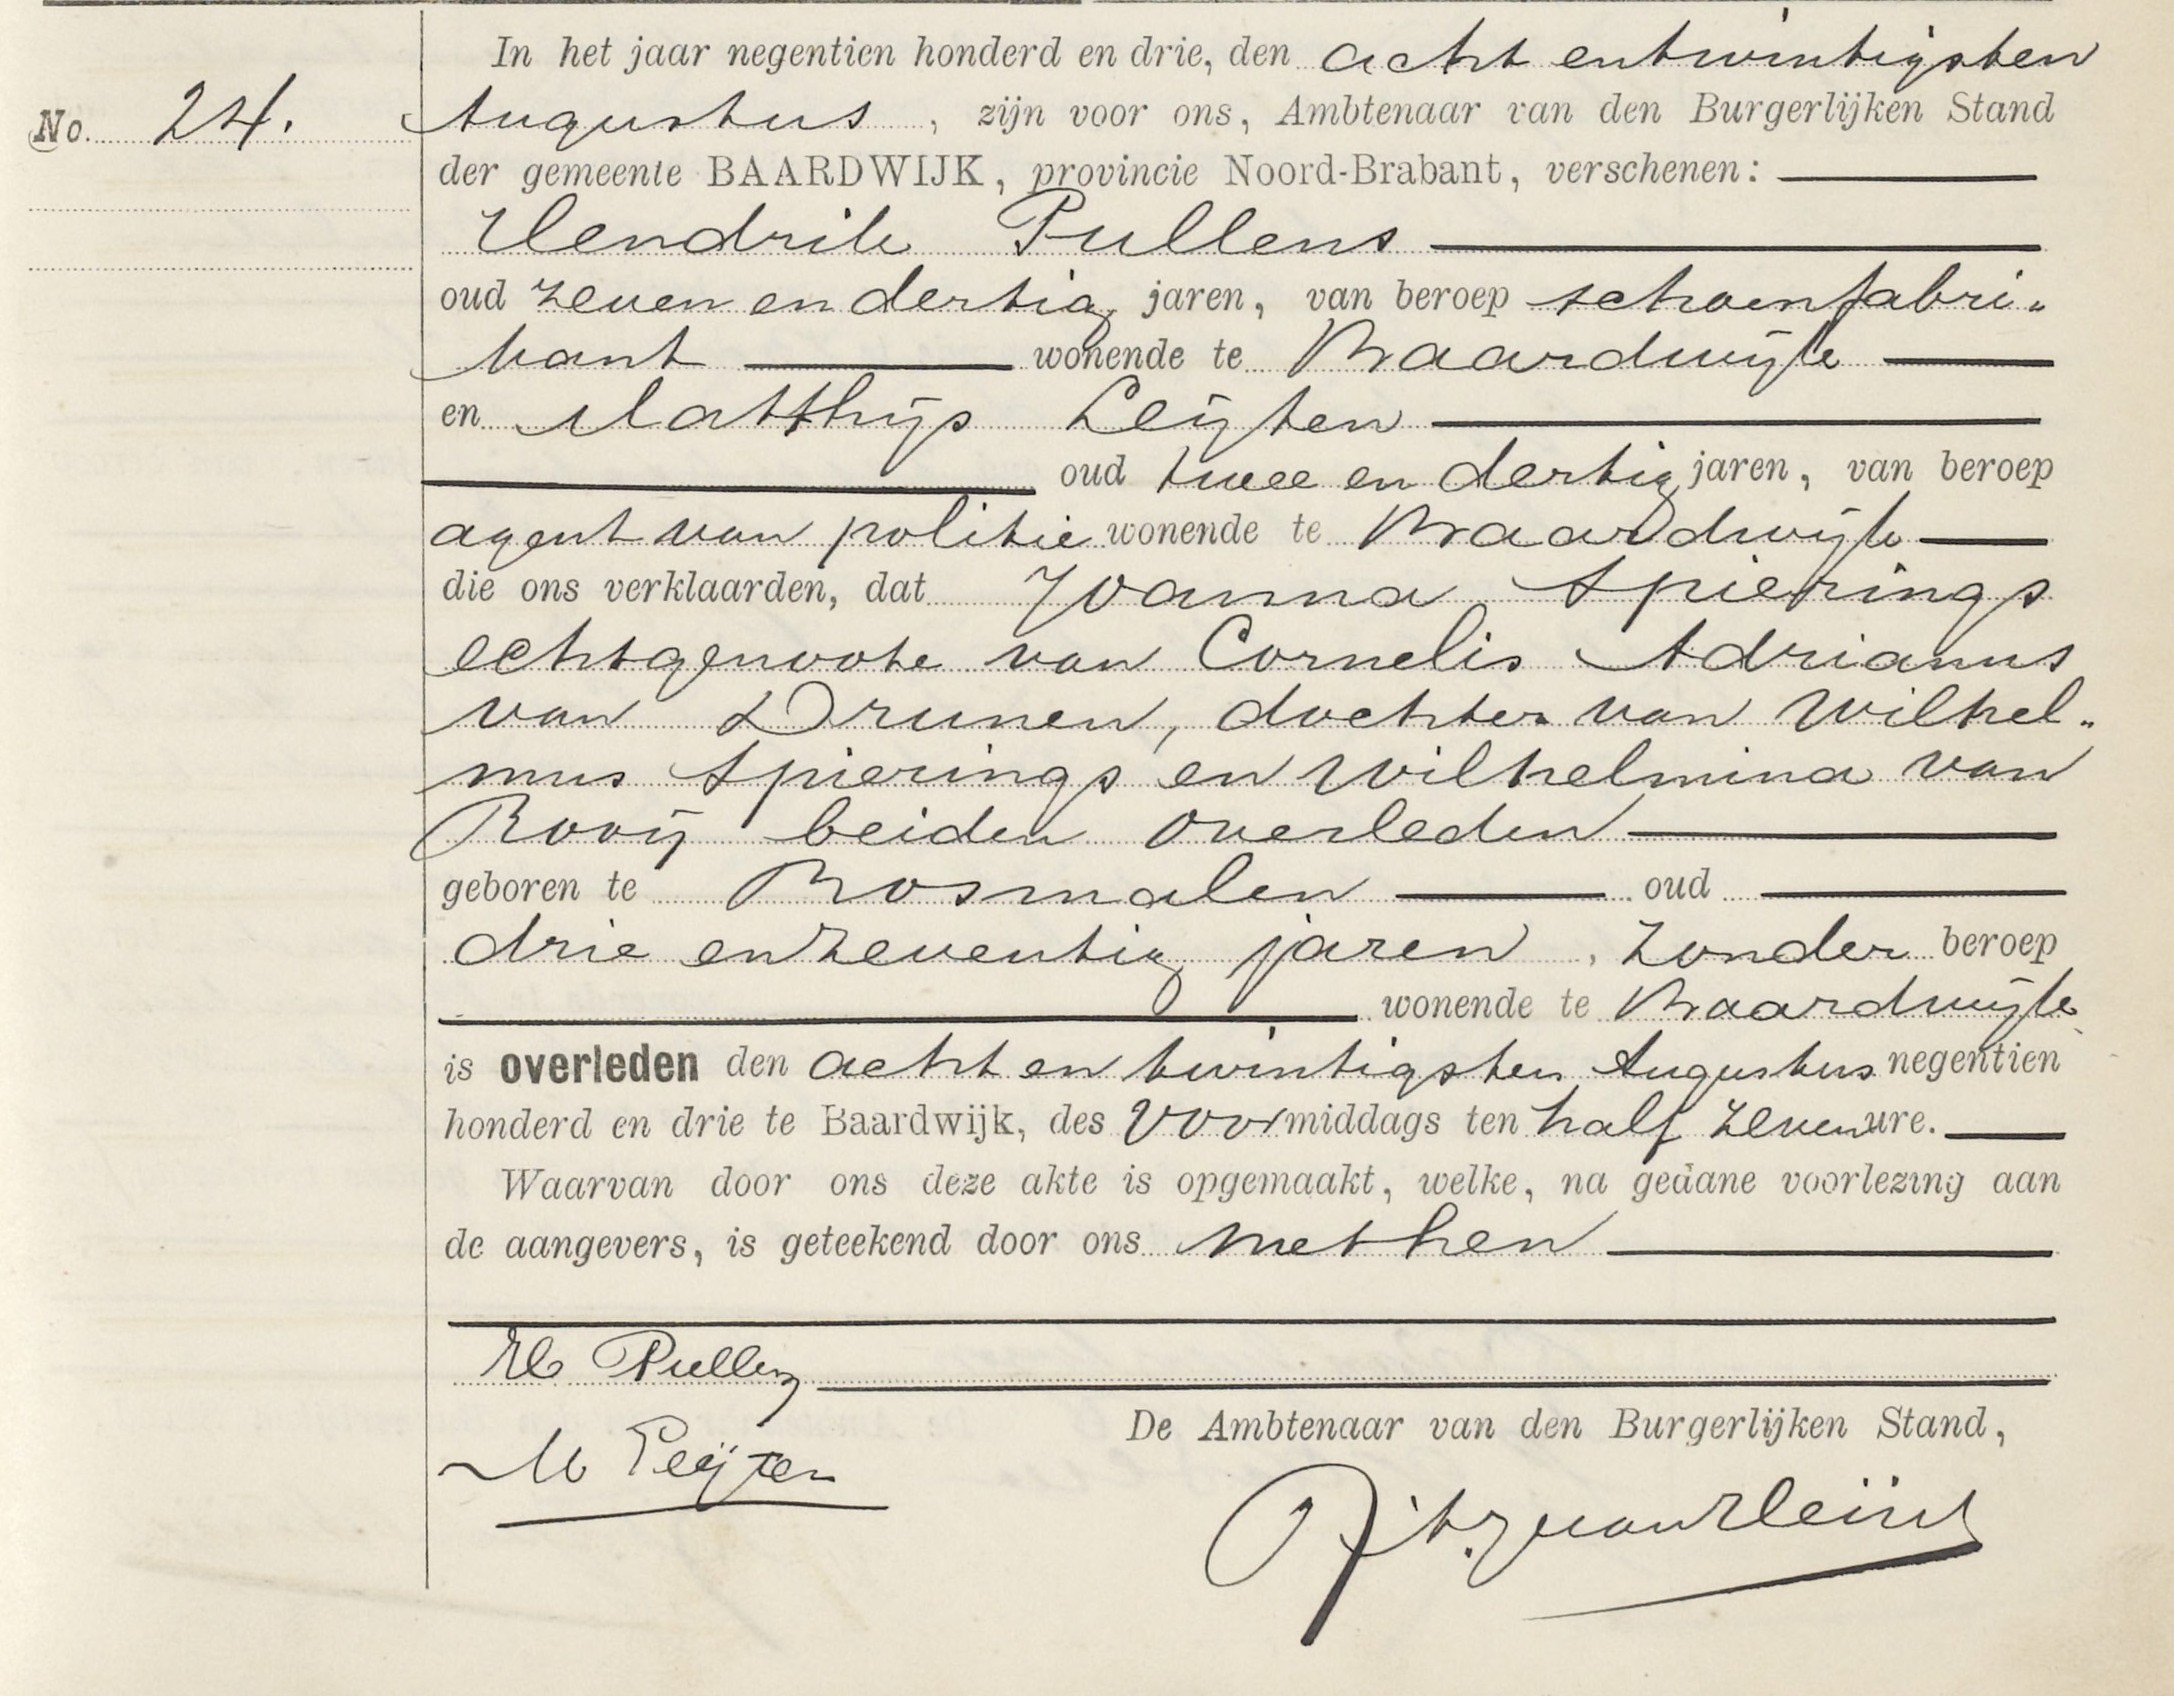 In het jaar negentien honderd en drie, den acht entwintigsten
No. 24. Augustus, zijn voor ons, Ambtenaar van den Burgerlijken Stand
der gemeente BAARDWIJK, provincie Noord-Brabant, verschenen:
Hendrik Pullens
oud zeven en dertig jaren, van beroep schoenfabri-
kant wonende te Baardwijk
en Matthijs Leijten
oud twee en dertig jaren, van beroep
agent van politie wonende te Baardwijk
die ons verklaarden, dat Joanna Spierings
echtgenoote van Cornelis Adrianus
van Drunen, dochter van Wilhel-
mus Spierings en Wilhelmina van
Rooij beiden overleden
geboren te Rosmalen oud
drie enzeventig jaren, zonder beroep
wonende te Baardwijk
is overleden den acht en twintigsten Augustus negentien
honderd en drie te Baardwijk, des Voormiddags ten half zeven ure.
Waarvan door ons deze akte is opgemaakt, welke, na gedane voorlezing aan
de aangevers, is geteekend door ons met hen
H Pullens
M Leijten
De Ambtenaar van den Burgerlijken Stand,